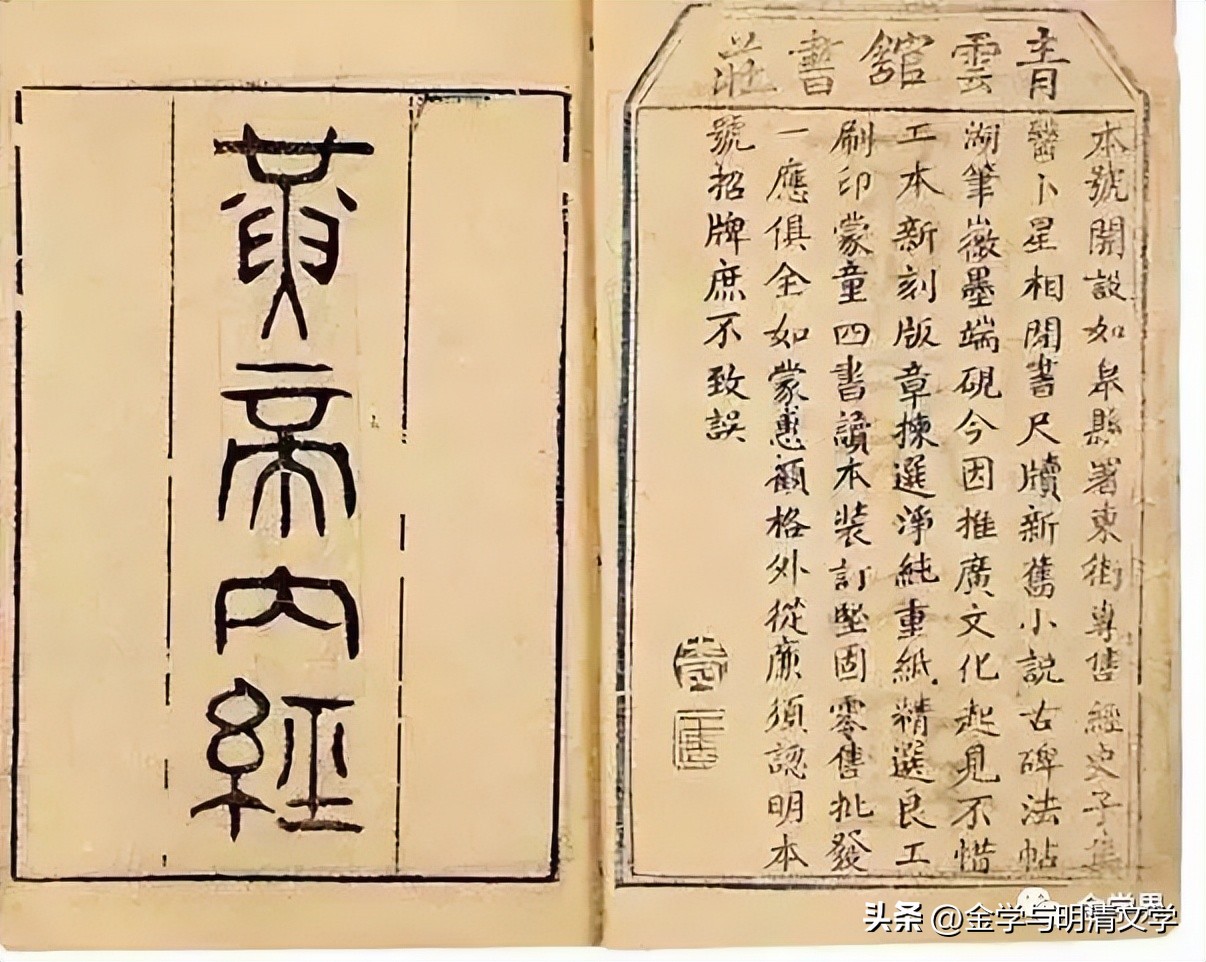 青雲館書莊
本號開設如皋縣署東街專售經史子集
醫卜星相閒書尺牘新舊小說古碑法帖
湖筆徽墨端硯今因推廣文化起見不惜
工本新刻版章揀選淨純重紙精選良工
刷印蒙童四書讀本裝訂堅固零售批發
一應俱全如蒙惠顧格外從廉須認明本
號招牌庶不致誤
黃帝內經
头条 @金学与明清文学